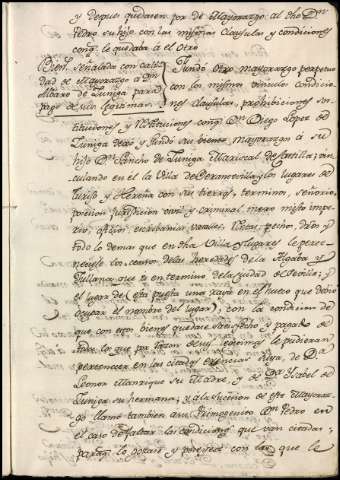 y despues quedaren por de Mayorazgo al dho Dn
Pedro su hijo con las mismas clausulas y condiciones
conq. le quedaba a el otro
Bienes señalada con cali
dad de Mayorazgo a Dn
Alvaro de Zuñiga para
pago de sus lexitimas.
fundó otro mayorazgo perpetuo
con los mismos vinculos condicio
nes clausulas, prohibiciones sus
tituciones y restituciones conq. Dn Diego Lopez de
Zuñiga dexó y fundó su mayorazgo a su
hijo Dn Sancho de Zuñiga Mariscal de Castilla; vin
culando en el la Villa de y los lugares de
Turiso y Hereña con sus tierras, termino, señorio,
jurisdicion civil y criminal mero misto impe
rio, oficios, escribanias, vasallos, Rentas, pechos, dros y
todo lo demas que en dha Villa y lugares le perte
neciese los de las heredades de la Algaba y
Tullana que es en termino de la ciudad de Sevilla; y
el lugar de (esta puesta una raya en el hueco que debio
ocupar el nombre del lugar), con la condicion de
que con estos bienes quedase satisfecho y pagado de
todo lo que por razon de sus lexitimas le pudieran
pertenecer en las citadas herencias de Dª
Leonor Manrique su Madre, y de Dª Ysabel de
Zuñiga su hermana; y a la sucesion de este Mayoraz
go llamó tambien a su Primogenito Dn Pedro en
el caso de faltar las condiciones que van citadas;
para q. lo posea y herede con las que le